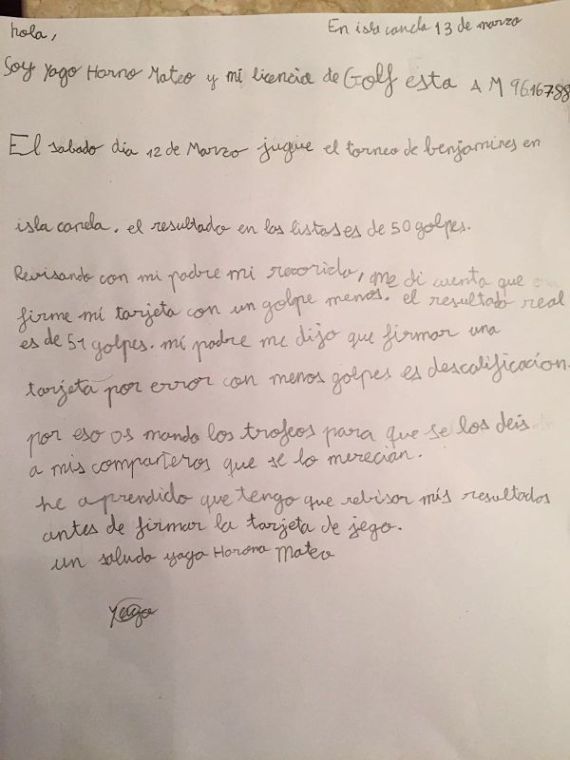 En isla canela 13 de marzo
hola,
Soy Yago Horno Mateo y mi licencia de Golf esta AM 96.167.88
El sabado dia 12 de Marzo jugue el torneo de benjamines en
isla canela. el resultado en las listas es de 50 golpes.
Revisando con mi padre mi recorrido, me di cuenta que
firme mi tarjeta con un golpe menos. el resultado real
es de 51 golpes. mi padre me dijo que firmar una
tarjeta por error con menos golpes es descalificacion.
por eso os mando los trofeos para que se los deis
a mis compañeros que se lo merecian.
he aprendido que tengo que rebisar mis resultados
antes de firmar la tarjeta de jego.
un saludo yago Mateo
Yago